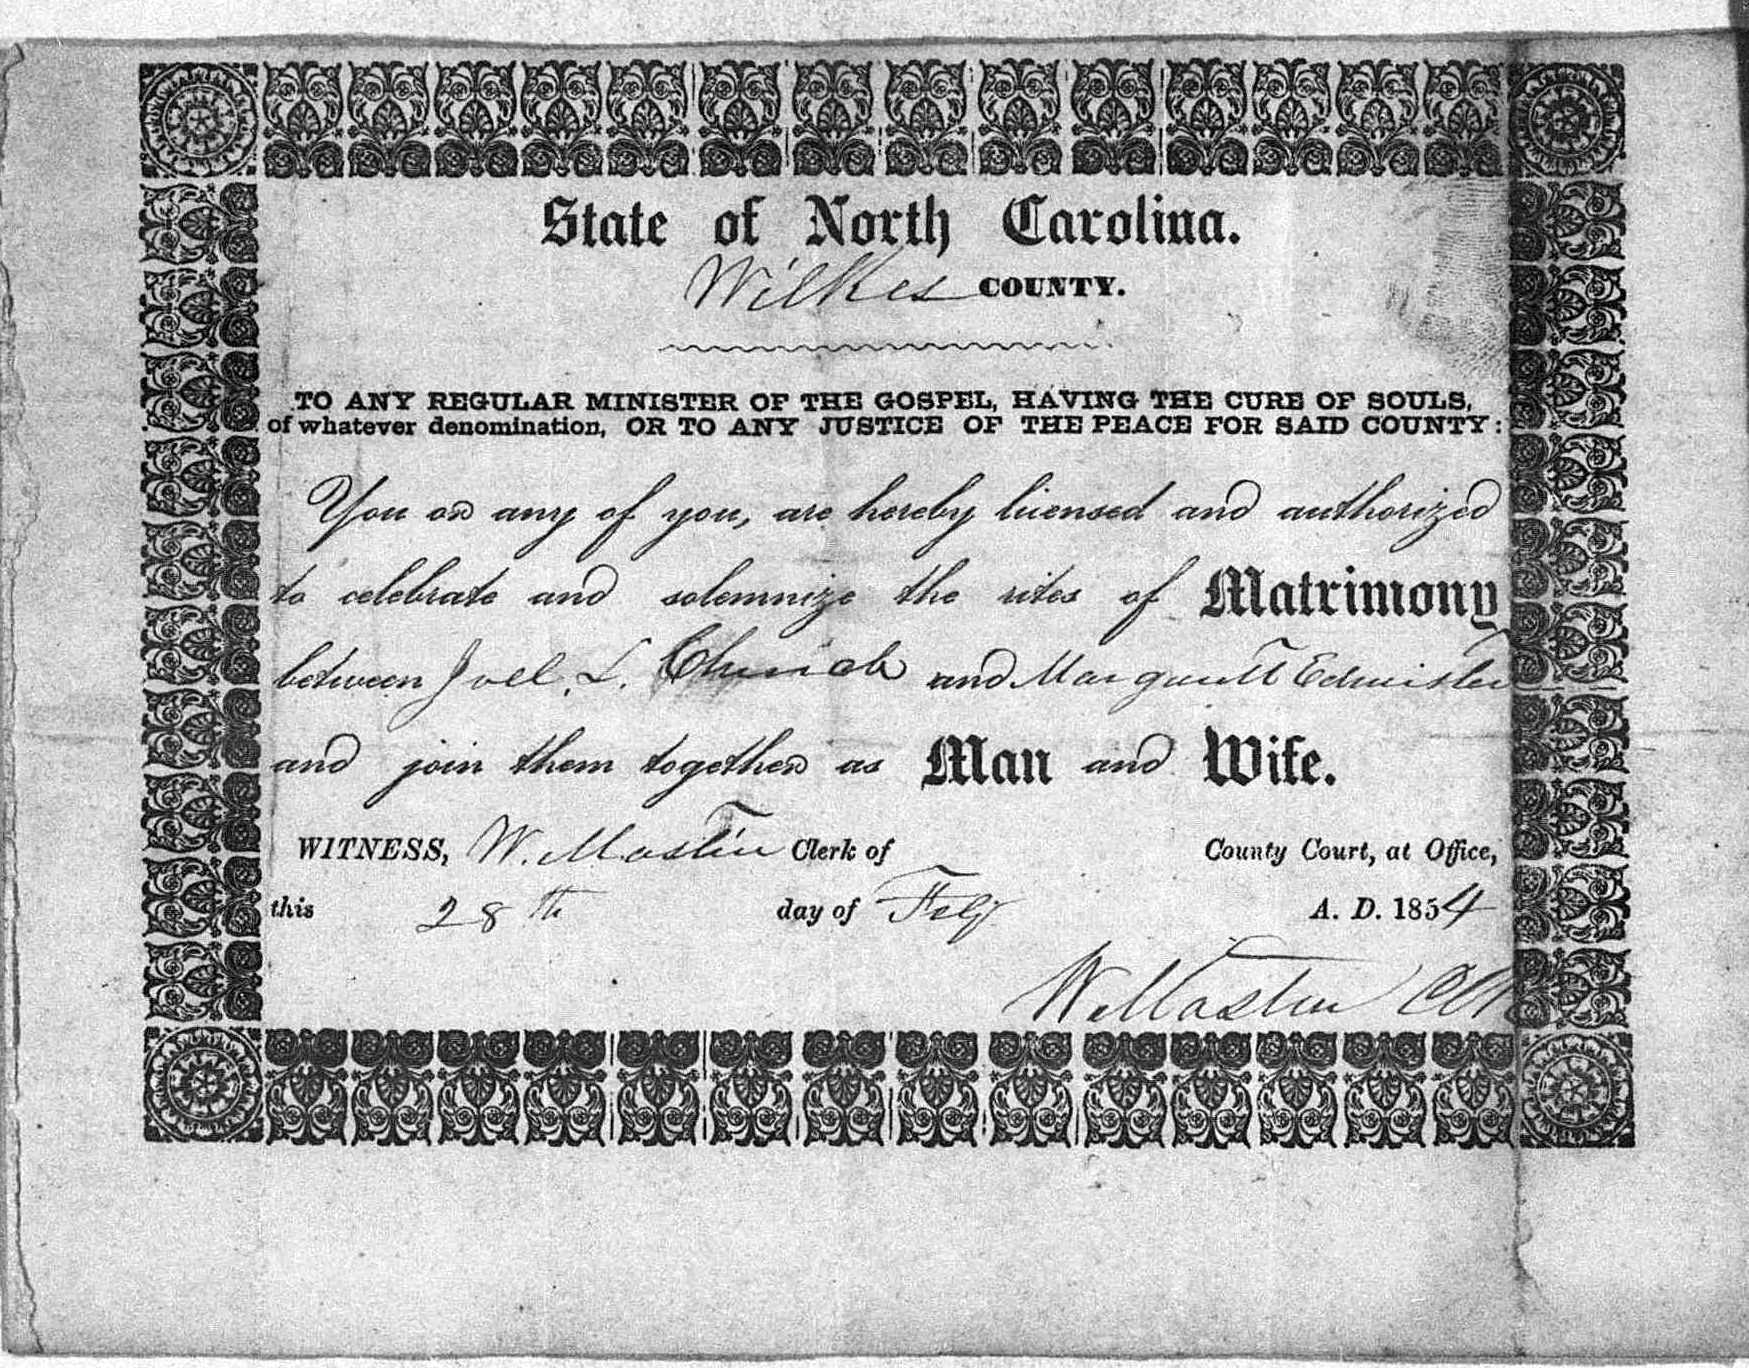 State of North Carolina.
Wilkes COUNTY.
TO ANY REGULAR MINISTER OF THE GOSPEL, HAVING THE CURE OF SOULS,
of whatever denomination, OR TO ANY JUSTICE OF THE PEACE FOR SAID COUNTY:
You or any of you, are hereby licensed and authorized
to celebrate and solemnize the rites of Matrimony
between Joel. L. Church and Margarett Edmisten
and join them together as Man and Wife.
WITNESS, W. Mastin Clerk of County Court, at Office,
this 28th day of Feby A. D. 1854
W Mastin Clk